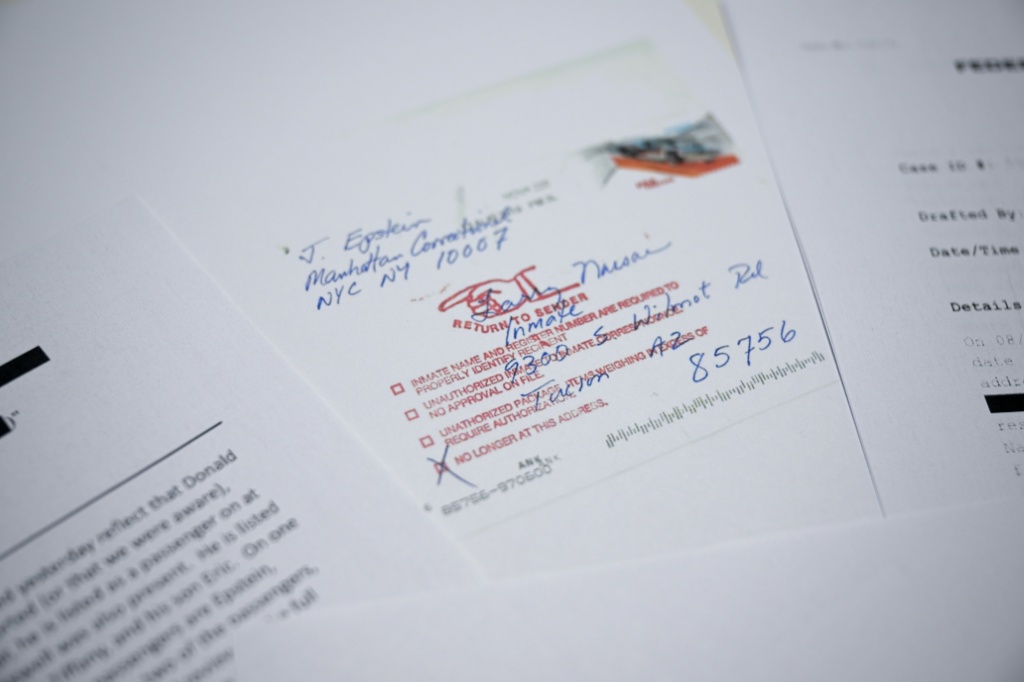 J. Epstein
Manhattan Correctional
NYC NY 10007
RETURN TO SENDER
Larry Nassar
Inmate
9300 S Wilmot Rd
Tucson AZ 85756
INMATE NAME AND REGISTER NUMBER ARE REQUIRED TO
PROPERLY IDENTIFY RECIPIENT
UNAUTHORIZED INMATE TO INMATE CORRESPONDENCE
NO APPROVAL ON FILE.
UNATHORIZED PACKAGE, ITEMS WEIGHING IN EXCESS OF
REQUIRE AUTHORIZATION
X NO LONGER AT THIS ADDRESS.
ANK
85756-970600
yesterday reflect that Donald
(or that we were aware),
he is listed as a passenger on at
was also present. He is listed
Tiffany, and his son Eric. On one
passengers are Epstein,
of the passengers,
full
Case ID #:
Drafted By
Date/Time
Details
On 08/
date
addr
res
Na
f